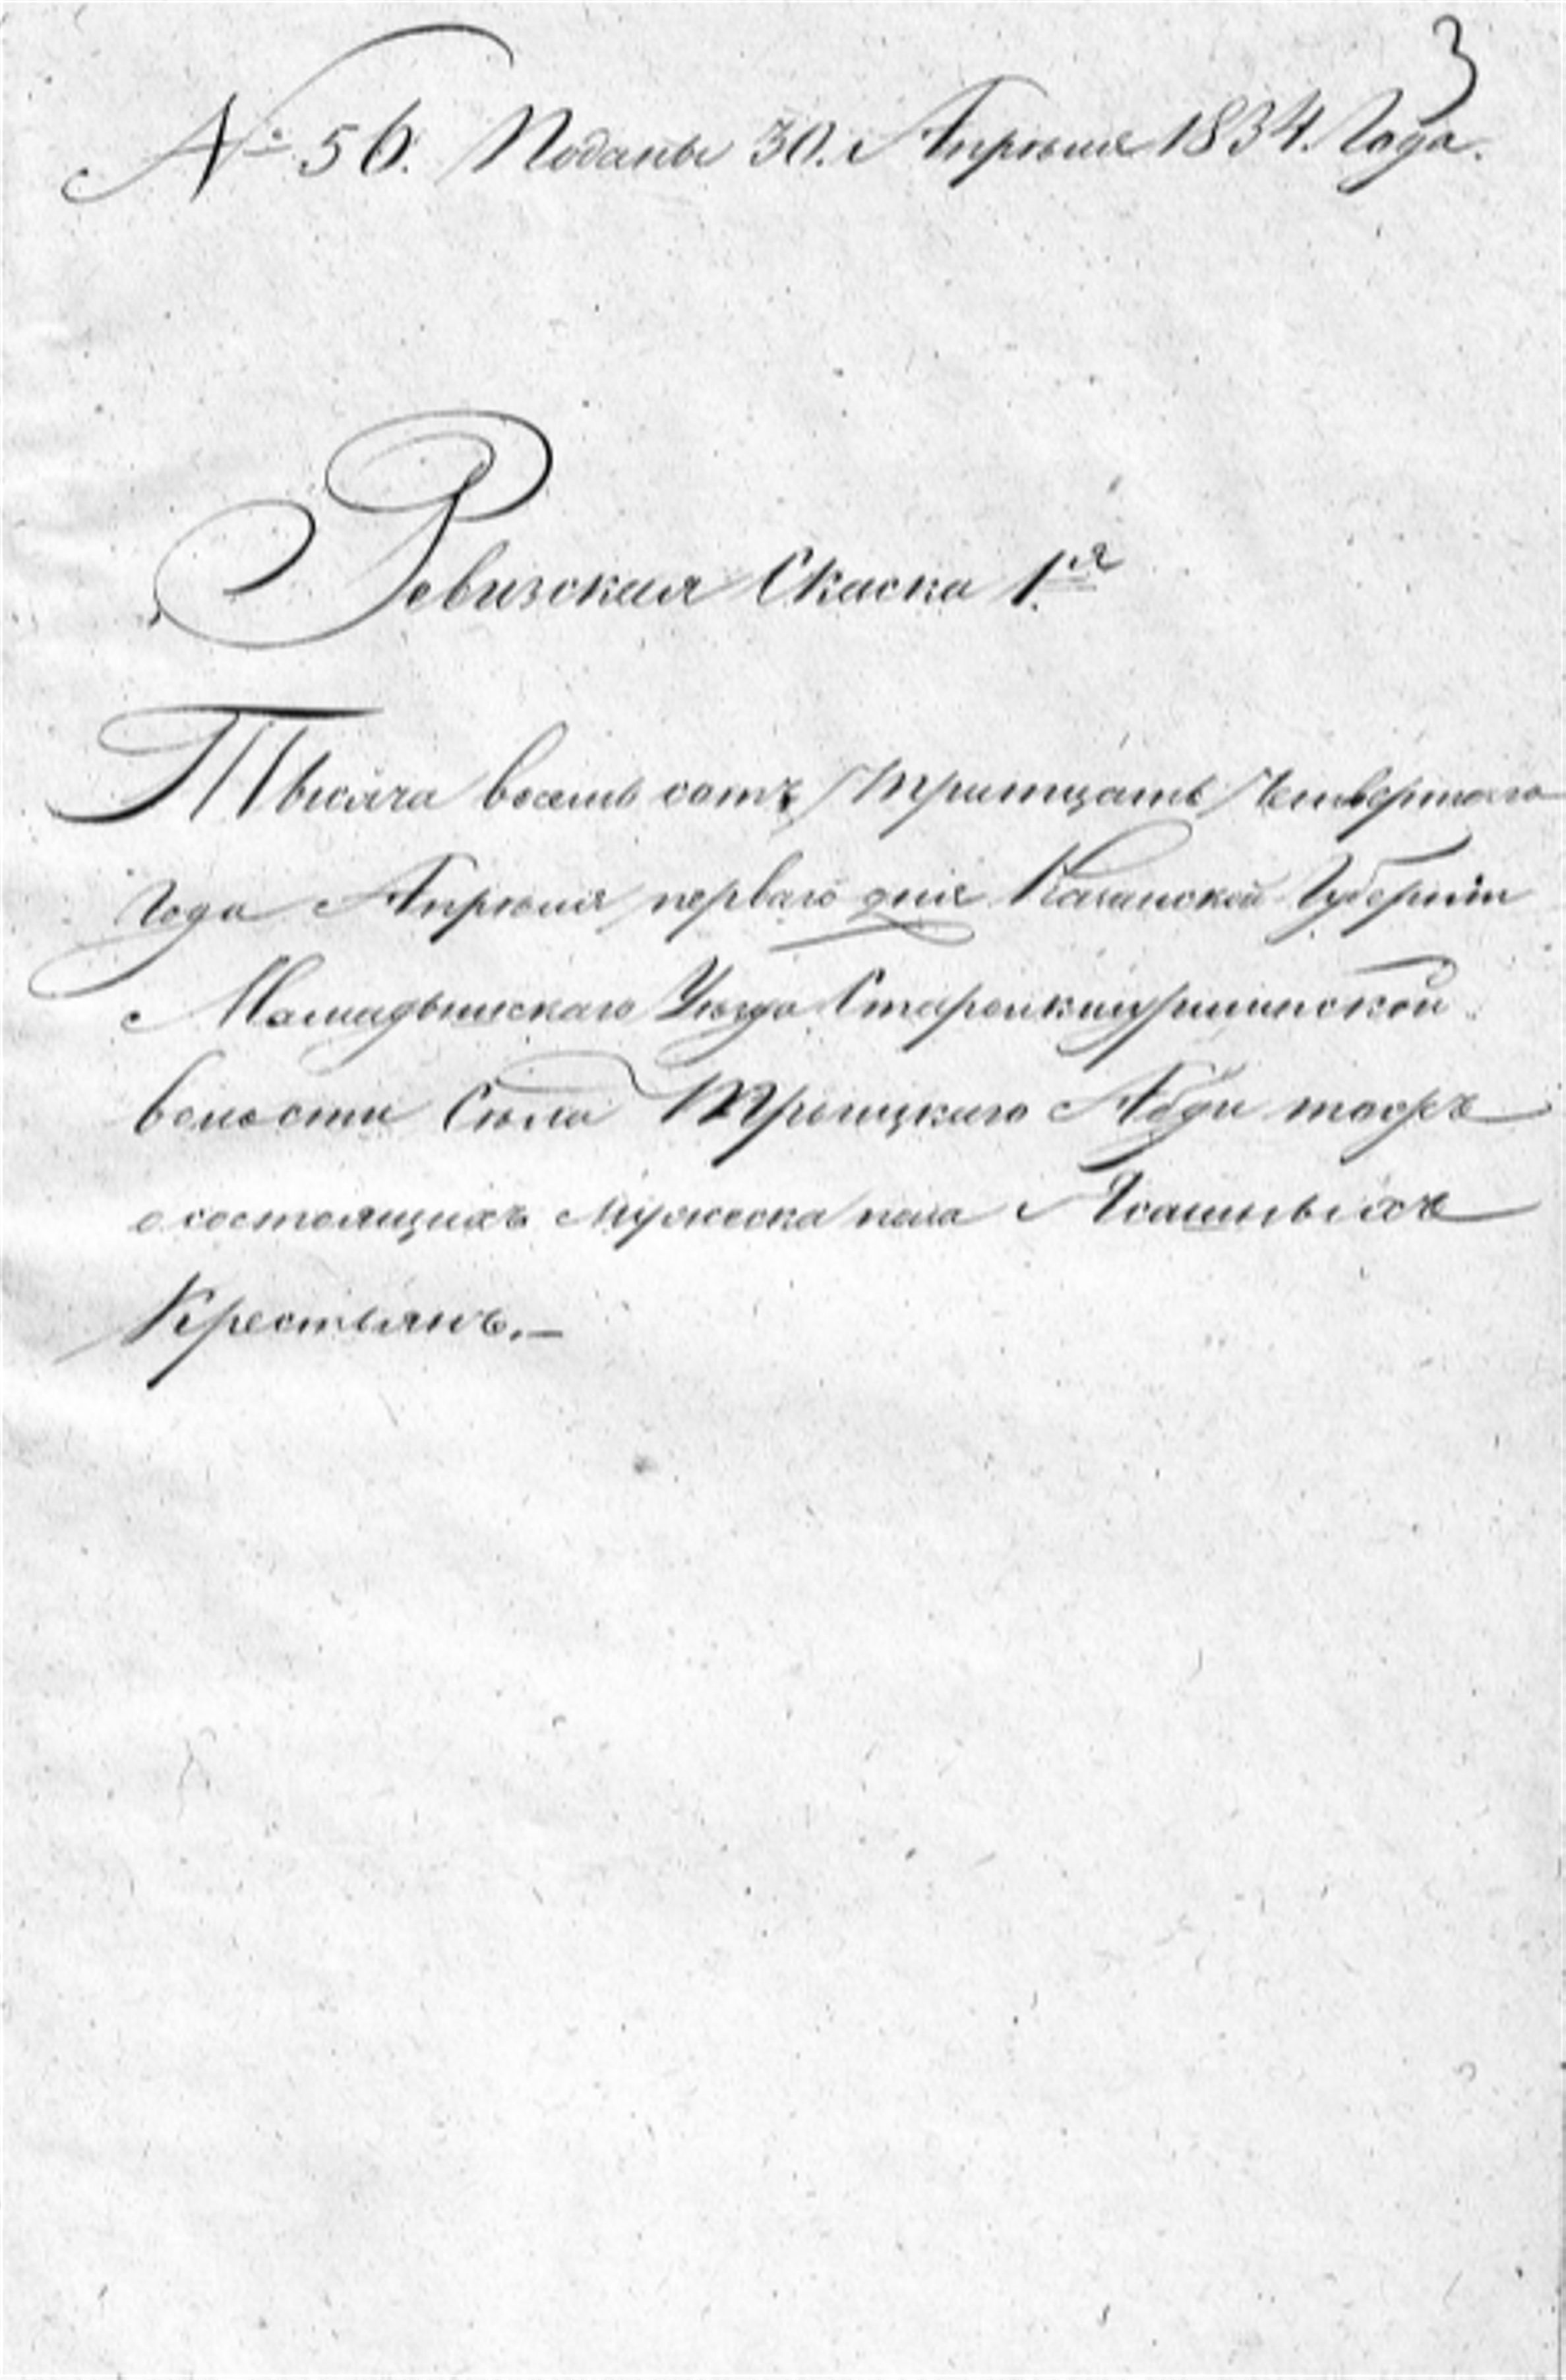 3
№ 56. Поданы 30. Апрѣля 1834. Года.
Ревизская Скаска 1.я
Тысяча восемь сотъ Тритцать Четвертаго
Года Апрѣля перваго дня Казанской Губернiи
Мамадышскаго Уѣзда
волости Сѣла Троицкаго Абди тожъ
о состоящихъ Мужеска пола Ясашныхъ
Крестьянъ.—